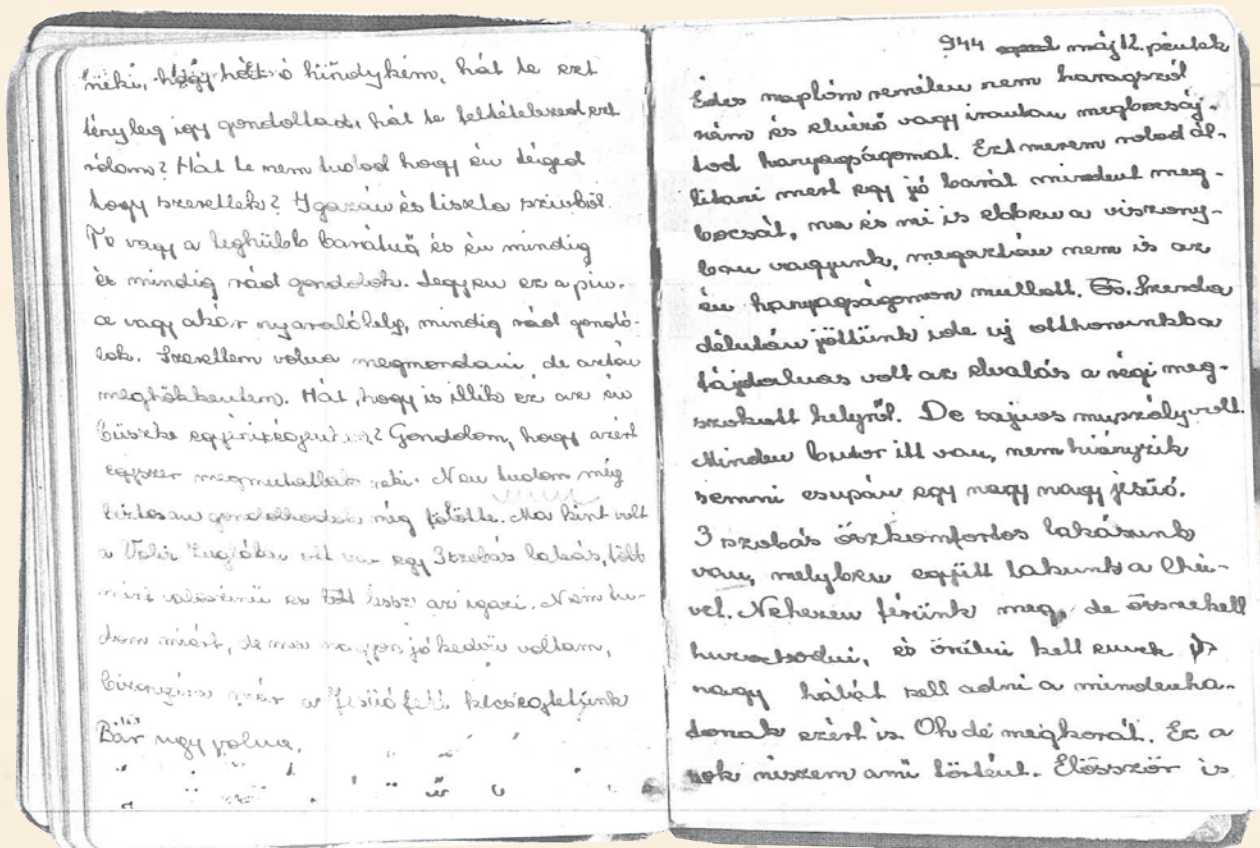 néki, hogy hát ó hündykém, hát te ezt
tényleg igy gondoltad, hát te feltételezed ezt
rólam? Hát te nem tudod hogy én téged
hogy szeretlek? Igazán és tiszta szivből.
Te vagy a leghübb barátnő és én mindig
és mindig rád gondolok. Legyen ez a pin-
ce vagy akár nyaralóhely, mindig rád gondo-
lok. Szerettem volna megmondani, de aztán
meghökkentem. Hát, hogy is illik ez az én
büszke Gondolom, hogy azért
egyszer megmutatlak neki. Nem tudom még
biztosan gondolkodok még fölötte. Ma kint volt
a Zuglóban ott van egy 3 szobás lakás, több
mint valószinü ez lesz az igazi. Nem tu-
dom miért, de ma nagyon jókedvü voltam,
már a jösüő felé
Bár ugy volna.
944 máj 12. péntek
Édes naplóm remélem nem haragszól
rám és elnéző vagy irántam megbocsáj-
tod hanyagságomat. Ezt merem rolad ál-
litani mert egy jó barát mindent meg-
bocsát, na és mi is ebben a viszony-
ban vagyunk, megaztán nem is az
én hanyagságomon mullott. Szerda
délután jöttünk ide uj otthonunkba
fájdalmas volt az elválás a régi meg-
szokott helyről. De sajnos muszály volt.
Minden butor itt van, nem hiányzik
semmi csupán egy nagy nagy jösüő.
3 szobás öszkomfortos lakásunk
van, melyben együtt lakunk a
vel. Nehezen férünk meg, de összekell
huzachodni, és örülni kell ennek
nagy hálát kell adni a mindenha-
tonak ezért is. Oh de megkorát. Ez a
sok niszem ami történt. Elösször is